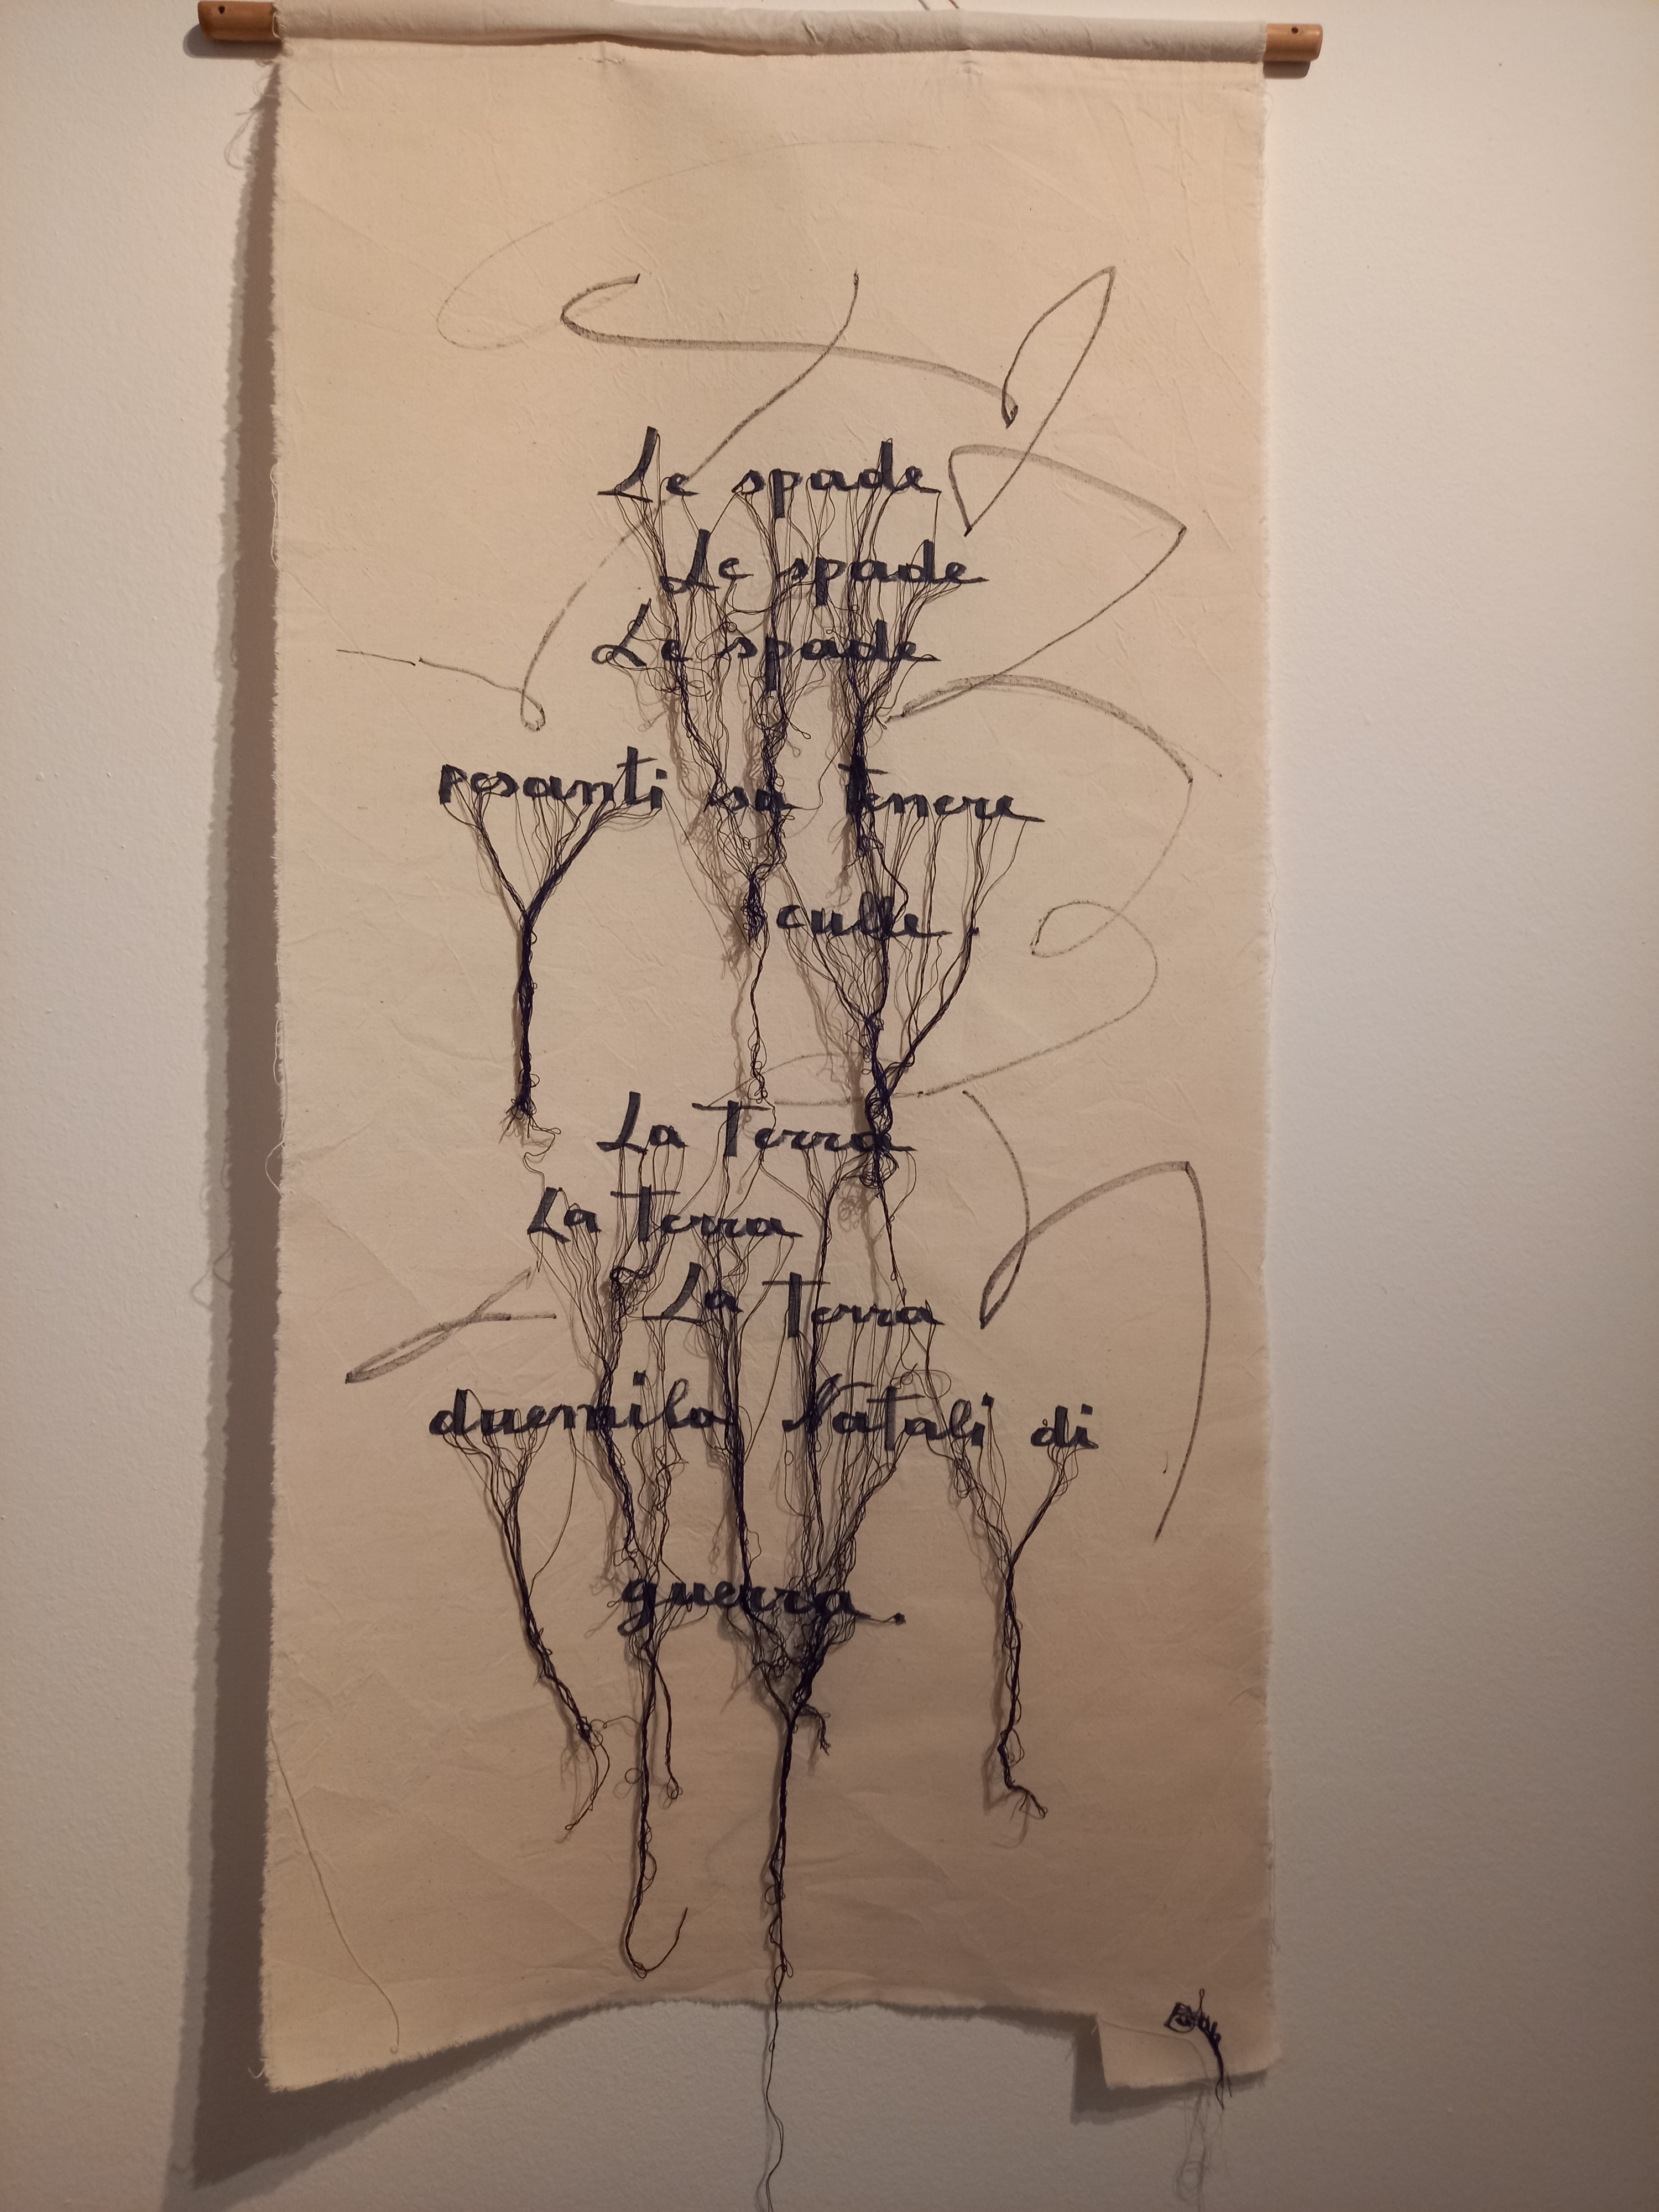 Le spade
Le spade
Le spade
pesanti su tenere
culle.
La Terra
La Terra
La Terra
duemila Natali di
guerra.